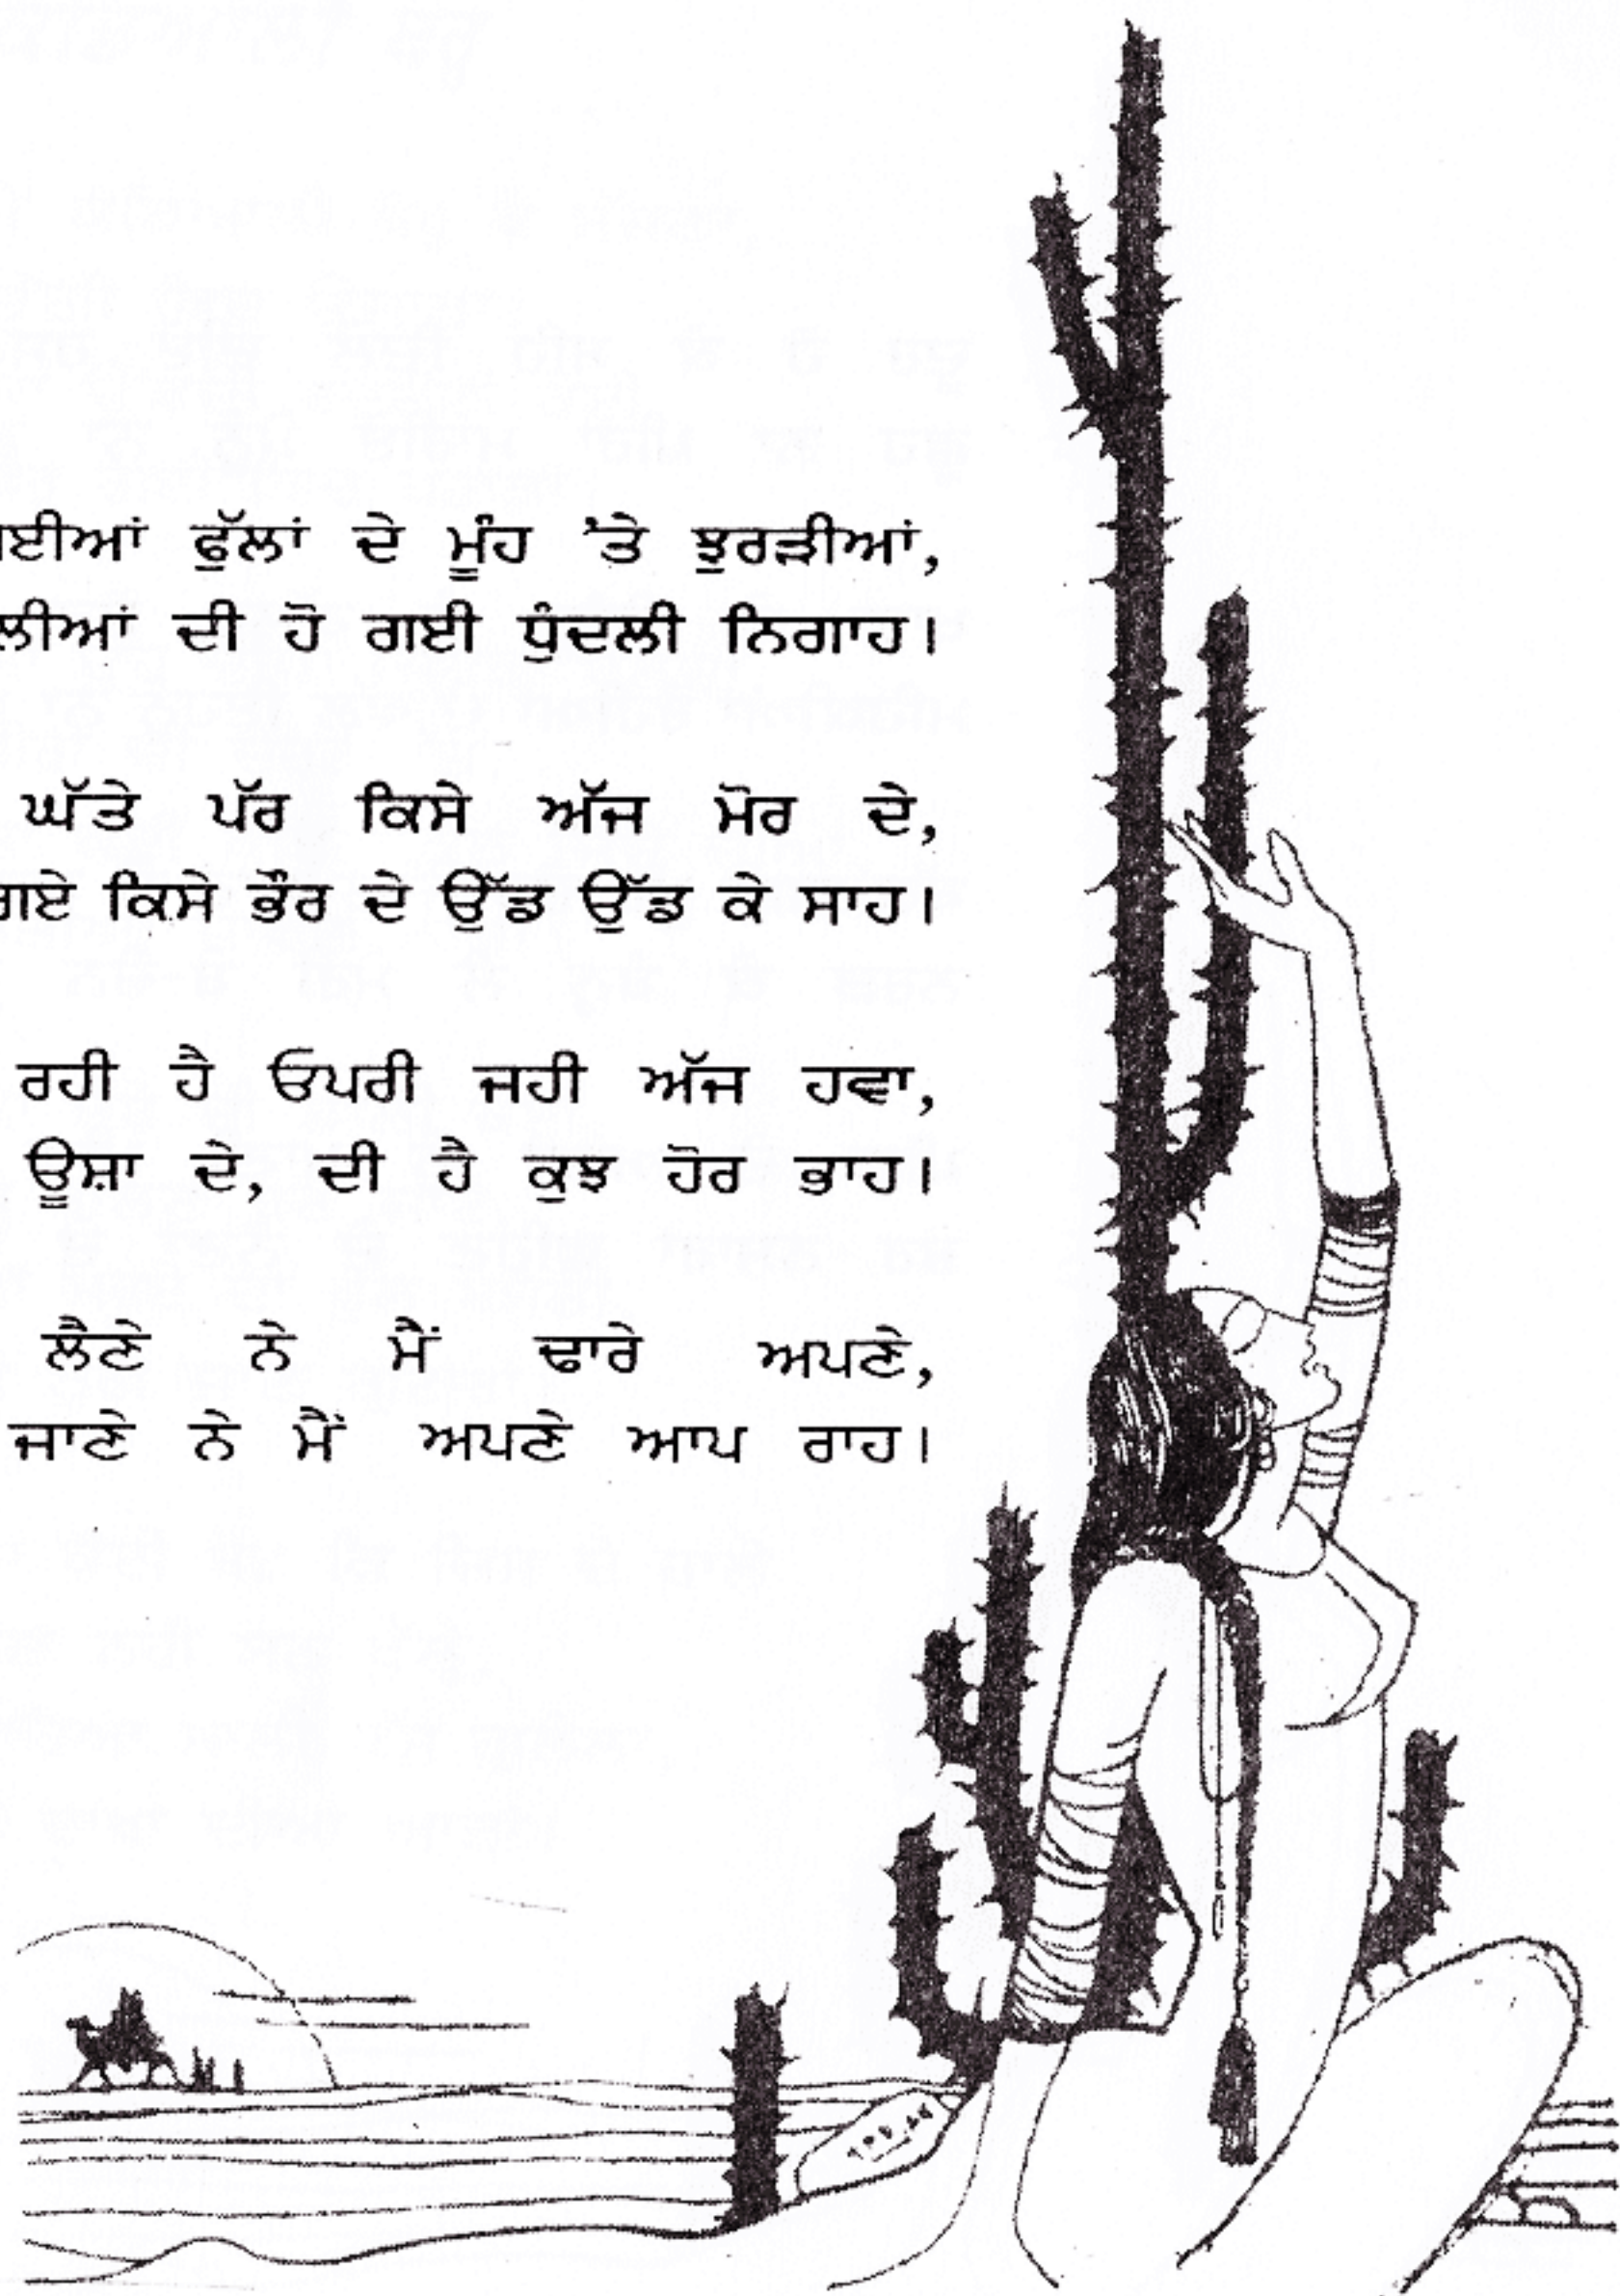 ਗਈਆਂ ਫੁੱਲਾਂ ਦੇ ਮੂੰਹ ’ਤੇ ਝੁਰੜੀਆਂ,
ਲੀਆਂ ਦੀ ਹੋ ਗਈ ਧੁੰਦਲੀ ਨਿਗਾਹ।
ਘੱਤੇ ਪੱਰ ਕਿਸੇ ਅੱਜ ਮੋਰ ਦੇ,
ਗਏ ਕਿਸੇ ਭੌਰ ਦੇ ਉੱਡ ਉੱਡ ਕੇ ਸਾਹ।
ਰਹੀ ਹੈ ਓਪਰੀ ਜਹੀ ਅੱਜ ਹਵਾ,
ਊਸ਼ਾ ਦੇ, ਦੀ ਹੈ ਕੁਝ ਹੋਰ ਭਾਹ।
ਲੈਣੇ ਨੇ ਮੈਂ ਢਾਰੇ ਅਪਣੇ,
ਜਾਣੇ ਨੇ ਮੈਂ ਅਪਣੇ ਆਪ ਰਾਹ।